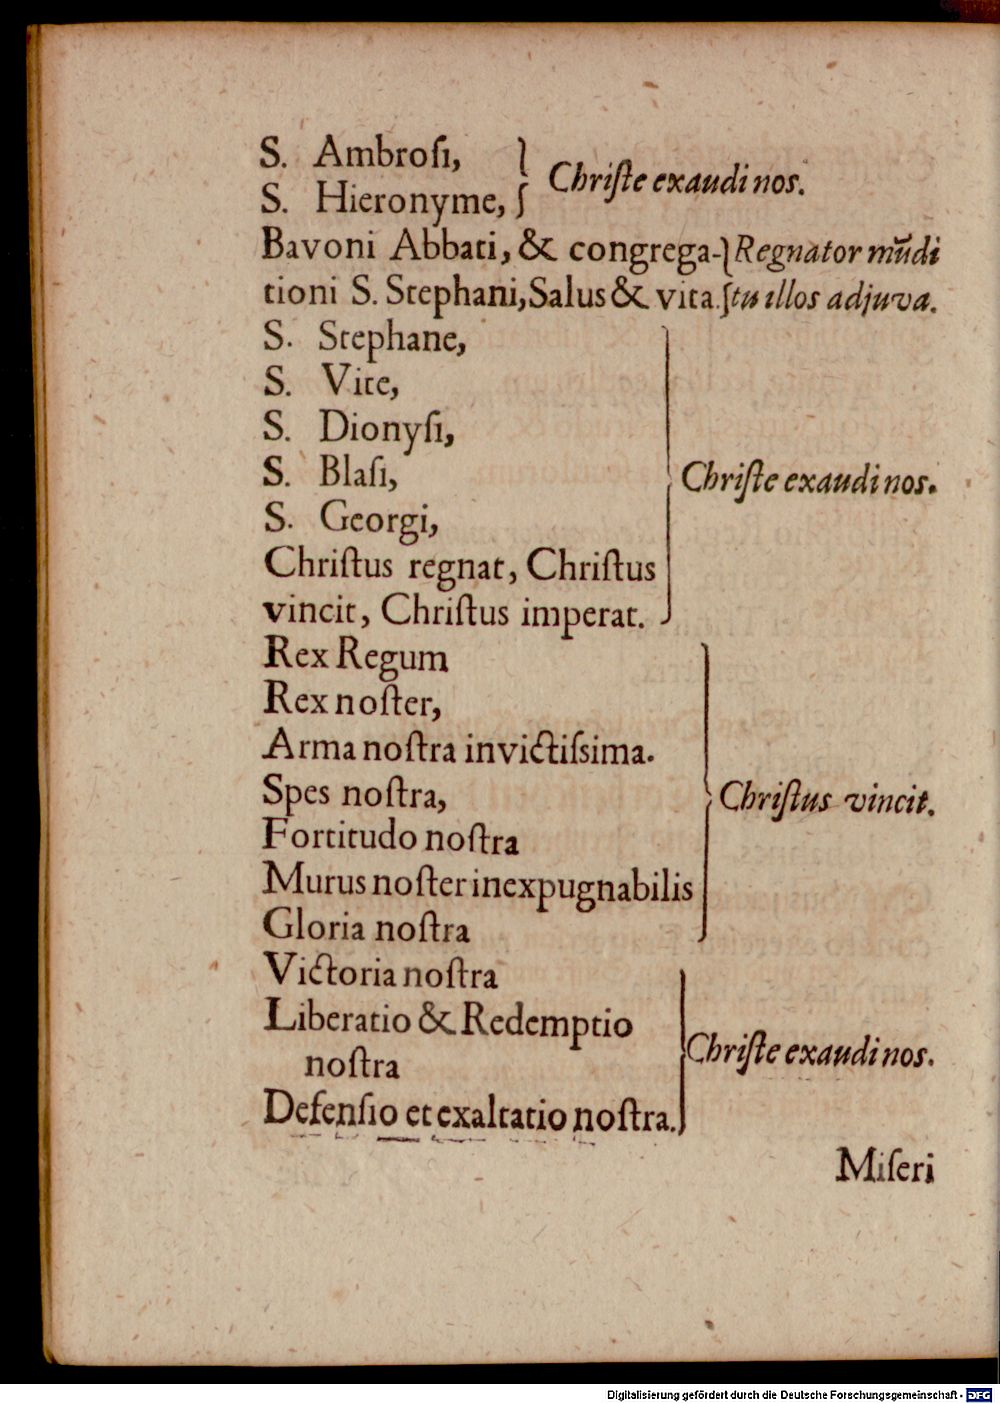 S. Ambroſi,
S. Hieronyme,
Chriſte exaudi nos.
Bavoni Abbati, & congrega-
tioni S. Stephani, Salus & vita.
Regnator mūdi
tu illos adjuva.
S. Stephane,
S. Vite,
S. Dionyſi,
S. Blaſi,
S. Georgi,
Chriſtus regnat, Chriſtus
vincit, Chriſtus imperat.
Chriſte exaudi nos.
Rex Regum
Rex noſter,
Arma noſtra invictiſsima.
Spes noſtra,
Fortitudo noſtra
Murus noſter inexpugnabilis
Gloria noſtra
Chriſtus vincit.
Victoria noſtra
Liberatio & Redemptio
noſtra
Defenſio et exaltatio noſtra.
Chriſte exaudi nos.
Miſeri
Digitalisierung gefördert durch die Deutsche Forschungsgemeinschaft - DFG